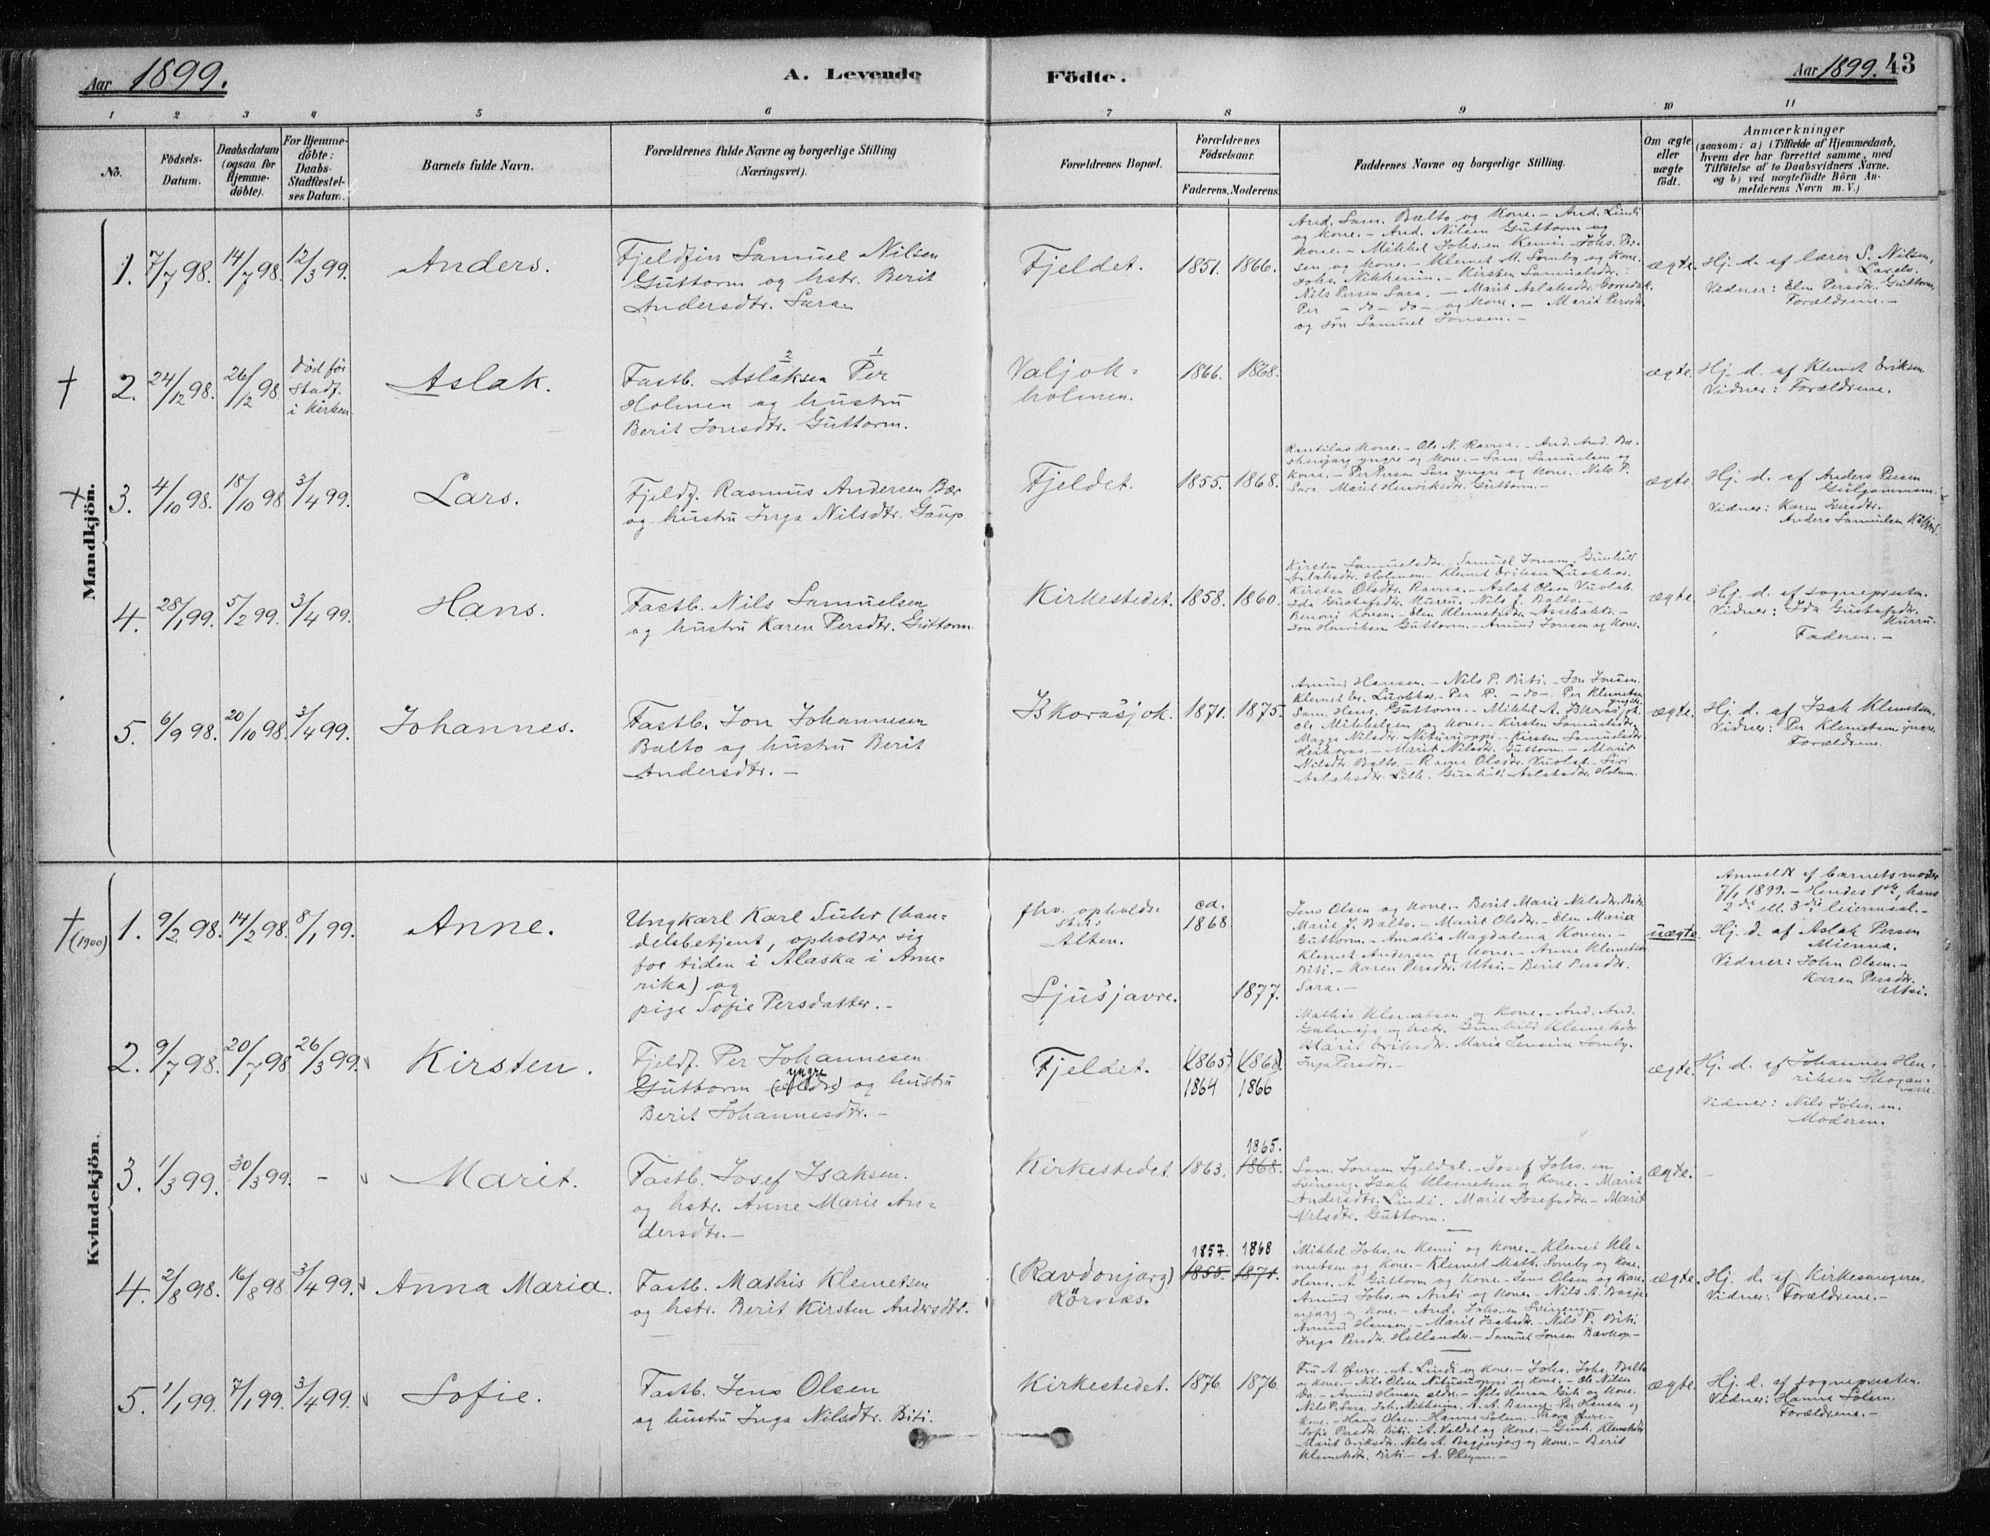 Aar 1899.
A. Levende
Födte.
Aar 1899. 43
1 2 3 4 5 6 7 8 9 10 11
No.
Födsels-
Datum.
Daabsdatum
(ogsaa for
Hjemme-
döbte).
For Hjemme-
döbte:
Daabs-
Stadfæstel-
ses Datum.
Barnets fulde Navn.
Forældrenes fulde Navne og borgerlige Stilling
(Næringsvei).
Forældrenes Bopæl.
Forældrenes
Födselsaar.
Faderens. Moderens.
Faddernes Navne og borgerlige Stilling.
Om ægte
eller
uægte
födt.
Anmærkninger
(saasom: a) i Tilfælde af Hjemmedaab,
hvem der har forrettet samme, med
Tilföielse af to Daabsvidners Navne.
og b) ved uægtefödte Börn An-
melderens Navn m. V.)
Mandkjön.
1. 7/7 98. 14/7 98. 12/3 99.
Anders.
Fjeldfin Samuel Nilsen
Guttorm og hstr. Berit
Andersdtr. Sara
Fjeldet. 1851. 1866.
And. Sam. Balto og Kone. - And. Lindi
og Kone. - And. Nilsen Guttorm og
Kone. - Mikkel Johs.en Kemi. - Johs. Per-
sen og Kone. - Klemet M. Somby og Kone.
Johs. Nikkinen. - Kirsten Samuelsdtr. -
Nils Persen Sara. - Marit Aslaksdtr.
Per - do - do - og Kone. - Marit Persdtr.
og søn Samuel Jonsen. -
ægte.
Hj. d. af lærer S. Nilsen,
Vidner: Elen Persdtr. Guttorm,
Forældrene. -
†
2. 24/12 98. 26/12 98. Död før
Stadf.
i Kirken
Aslak.
2 1
Fastb. Aslaksen Per
Holmen og hustru
Berit Jonsdtr. Guttorm.
Valjok-
holmen.
1866. 1868.
ægte.
Hj. d. af Klemet Eriksen
Vidner: Forældrene.
†
3. 4/10 98. 18/10 98. 3/4 99.
Lars.
Fjeldf. Rasmus Andersen Bær
og hustru Inga Nilsdtr. Gaup
Fjeldet. 1855. 1868.
Kone. - Ole N. Ravna. - And. And. Bæ-
yngre og Kone. - Sam. Samuelsen og
Kone. - Per Persen Sara yngre og Kone. Nils P.
Sara. Marit Henriksdtr. Guttorm. -
ægte.
Hj. d. af Anders Persen
Vidner: Karen Iversdtr.
Anders Samuelsen
4. 28/1 99. 5/2 99. 3/4 99.
Hans.
Fastb. Nils Samuelsen
og hustru Karen Persdtr. Guttorm
Kirkestedet. 1858. 1860.
Kirsten Samuelsdtr. - Samuel Jonsen. Gunhild
Aslaksdtr. Holmen. - Klemet Eriksen Luokkar.
Kirsten Olsdtr. Ravna. - Aslak Olsen Vuolab.
Ida Gustafsdtr. Murru. Nils J. Balto. -
Benoni Koren. - Elen Klemetsdtr.
Jon Henriksen Guttorm. - Amund Jonsen og Kone.
ægte.
Hj. d. af sognepresten.
Vidner: Ida Gustafsdtr.
Murru.
Faderen. -
5. 6/9 98. 20/10 98. 3/4 99.
Johannes.
Fastb. Jon Johannesen
Balto og hustru Berit
Andersdtr. -
Iskorasjok. 1871. 1875.
Amund Hansen. - Nils P. Biti. - Jon Jonsen.
Klemet Er. Luokkar. - Per P. - do -. Per Klemetsen
yngre
Sam. Henr. Guttorm. - Mikkel A. Iskorasjok.
Ole Mikkelsen og Kone. - Kirsten Samuelsdtr.
Magga Nilsdtr. - Kirsten Samuelsdtr.
Marit Nilsdtr. Guttorm. - Marit
Nilsdtr. Balto. - Ravna Olsdtr. Vuolab. - Siri
Aslaksdtr. Gunhild Aslaksdtr. Holmen.
ægte.
Hj. d. af Isak Klemetsen.
Vidner: Per Klemetsen yngre,
Forældrene.
Kvindekjön.
† (1900)
1. 9/2 98. 14/2 98. 8/1 99.
Anne.
Ungkarl Karl Suhr (han-
delsbetjent, opholder sig
for tiden i Alaska i Ame-
rika) og
pige Sofie Persdatter. -
fhv. opholds-
sted:
Alten.
Ljusjavre.
ca.
1868.
1877.
Jens Olsen og Kone. - Berit Marie Nilsdtr. Biti.
Marit J. Balto. - Marit Olsdtr. - Elen Maria
Guttorm. - Amalia Magdalena Koren. -
Klemet Andersen og Kone. - Anne Klemetsdtr.
Biti. - Karen Persdtr. Utsi. - Berit Persdtr.
Sara. -
uægte.
Anmeldt af barnets moder
7/1 1899. - Hendes 1ste, hans
2det ell. 3die leiermaal. -
Hj. d. af Aslak Persen
Mienna.
Vidner: John Olsen. -
Karen Persdtr.
Utsi.
2. 9/7 98. 20/7 98. 26/3 99.
Kirsten.
Fjeldf. Per Johannesen
yngre
Guttorm (ældre) og hustru
Berit Johannesdtr. -
Fjeldet. (1865) (1868).
1864 1866
Mathis Klemetsen og Kone. - And. And.
og hstr. Gunhild Klemetsdtr.
Marit Eriksdtr. Maria Jensine Somby.
Inga Persdtr. -
ægte.
Hj. d. af Johannes Hen-
riksen
Vidner: Nils Johs.en.
Moderen.
3. 1/3 99. 30/3 99. -
Marit.
Fastb. Josef Isaksen.
og hstr. Anne Marie An-
dersdtr. -
Kirkestedet. 1863. 1865.
1868.
Sam. Jonsen - Josef Johs.en
Svineng. Isak Klemetsen og Kone. - Marit
Andersdtr. Lindi. Marit Josefsdtr. - Marit
Nilsdtr. Guttorm.
ægte. -
4. 2/8 98. 16/8 98. 3/4 99.
Anna Maria.
Fastb. Mathis Klemetsen
og hstr. Berit Kirsten Andersdtr.
(Ravdonjarg)
Rörnæs.
1857. 1868
1855. 1871.
Mikkel Johs.en Kemi og Kone. - Klemet Kle-
metsen og Kone. - Klemet Math. Somby og Kone.
Henr. A. Guttorm og Kone. - Jens Olsen og Kone.
Amund Johs.en Anti og Kone. - Nils A.
og Kone. - And. Johs.en Svineng. -
Amund Hansen. - Marit Isaksdtr. - Nils P. Biti.
Inga Persdtr. Hellander. - Samuel Jonsen
ægte.
Hj. d. af Kirkesangeren.
Vidner: Forældrene. -
5. 1/1 99. 7/1 99. 3/4 99.
Sofie.
Fastb. Jens Olsen
og hustru Inga Nilsdtr. Biti.
Kirkestedet. 1876. 1876
A. Lindi og Kone. - Johs. Johs. Balto
og Kone. - Nils Olsen og Kone. - Ole Nilsen
Do. - Amund Hansen og Kone.
Nils P. Sara. Joh. Nikkinen. Per Hansen og
Kone. - Hans Olsen. - Hanna Solem. -
Sofie Persdtr. Biti. A. Valdal og Kone. - Gunh. Klemetsdtr.
Marit Eriksdtr. Nils A. og Kone. - Berit
Klemetsdtr. Biti. -
ægte.
Hj. d. af sognepresten.
Vidner: Hanna Solem.
Forældrene. -